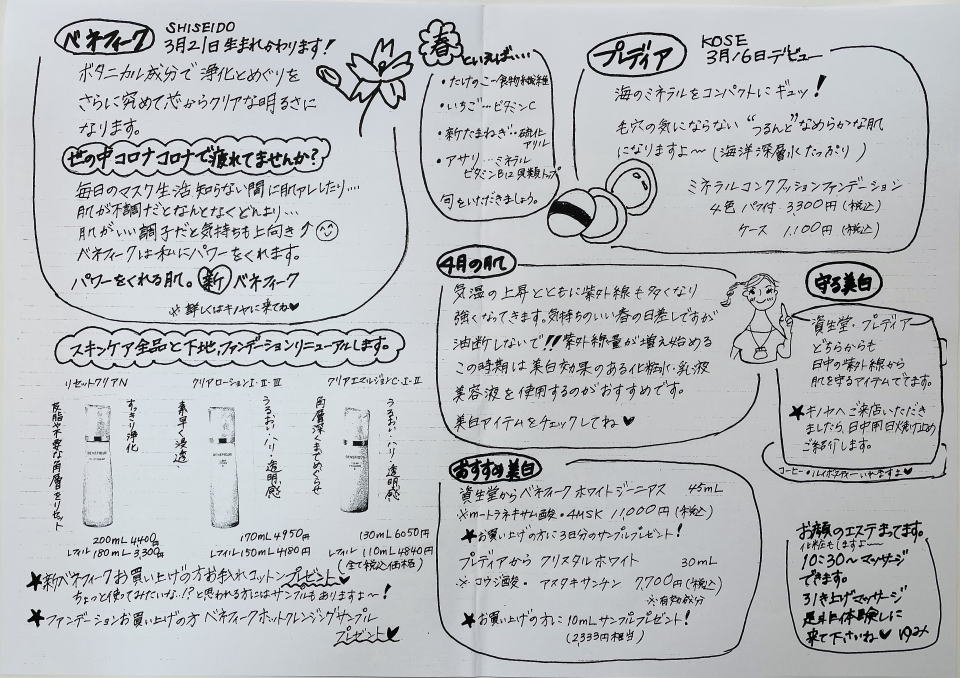 ベネフィーク
SHISEIDO
3月21日生まれかわります!
ボタニカル成分で浄化とめぐりを
さらに究めて芯からクリアな明るさに
なります。
世の中コロナコロナで疲れてませんか?
毎日のマスク生活 知らない間に肌アレしたり…
肌が不調だとなんとなくどんより…
肌がいい調子だと気持ちも上向き
ベネフィークは私にパワーをくれます。
パワーをくれる肌。新ベネフィーク
※詳しくはキノヤに来てね♥
春といえば‥‥
・たけのこ…食物繊維
・いちご…ビタミンC
・新たまねぎ…硫化
アリル
・アサリ…ミネラル
ビタミンB12 貝類トップ
旬をいただきましょう。
プレディア
KOSE
3月16日デビュー
海のミネラルをコンパクトにギュッ!
毛穴の気にならない“つるんと”なめらかな肌
になりますよ～(海洋深層水たっぷり)
ミネラルコンクッションファンデーション
4色 パフ付 3,300円(税込)
ケース 1,100円(税込)
スキンケア全品と下地,ファンデーションリニューアルします。
リセットクリアN
すっきり浄化
皮脂や不要な角層をリセット
200mL 4,400円
レフィル 180mL 3,300円
クリアローションⅠ・Ⅱ・Ⅲ
うるおい・ハリ・透明感
素早く浸透、
170mL 4950円
レフィル 150mL 4180円
クリアエマルジョンC・Ⅰ・Ⅱ
うるおい・ハリ・透明感
角層深くまでめぐらせ
130mL 6050円
レフィル 110mL 4840円
(全て税込価格)
★新ベネフィークお買い上げの方お手入れコットンプレゼント♥
ちょっと使ってみたいな..!?と思われる方にはサンプルもありますよ～!
★ファンデーションお買い上げの方 ベネフィークホットクレンジングサンプル
プレゼント♥
4月の肌
気温の上昇とともに紫外線も多くなり
強くなってきます。気持ちのいい春の日差しですが
油断しないで!!紫外線量が増え始める
この時期は美白効果のある化粧水・乳液
美容液を使用するのがおすすめです。
美白アイテムをチェックしてね♥
守る美白
資生堂・プレディア
どちらからも
日中の紫外線から
肌を守るアイテムでてます。
★キノヤへご来店いただき
ましたら、日中用日焼け止め
ご紹介します。
コーヒー・ルイボスティーいれますよ♥
おすすめ美白
資生堂からベネフィークホワイトジーニアス 45mL
※m-トラネキサム酸・4MSK 11,000円(税込)
★お買い上げの方に3日分のサンプルプレゼント!
プレディアから クリスタルホワイト 30mL
※コウジ酸・アスタキサンチン 7,700円(税込)
※有効成分
★お買い上げの方に10mLサンプルプレゼント!
(2,333円相当)
お顔のエステまってます。
化粧もしますよ～
10:30～マッサージ
できます。
引き上げマッサージ
是非体験しに
来て下さいね♥ ゆみ